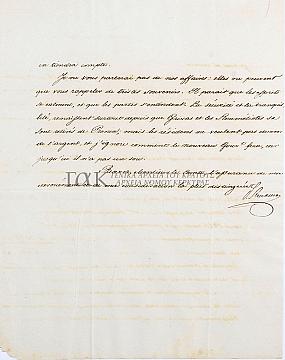 en tiendra compte.
Je ne vous parlerai pas de nos affaires: elles ne peuvent
que vous rappeler de tristes souvenirs. Il parait que les esprits
se calment, et que les partis s'entendent. La sécurité et la tranquil-
lité, renaissent surtout depuis que Grivas et les Roumeliotes se
sont retirés de mais les résidens ne veulent pas donner
de l'argent, et j'ignore comment le nouveau Gouvt fera, car
jusqu'ici il n'a pas un sou.
Recevez, Monsieur le Comte, l'assurance de mon
et de ma considération la plus distinguée
ΓΑΚ ΓΕΝΙΚΑ ΑΡΧΕΙΑ ΤΟΥ ΚΡΑΤΟΥΣ
ΑΡΧΕΙΑ ΝΟΜΟΥ ΚΕΡΚΥΡΑΣ